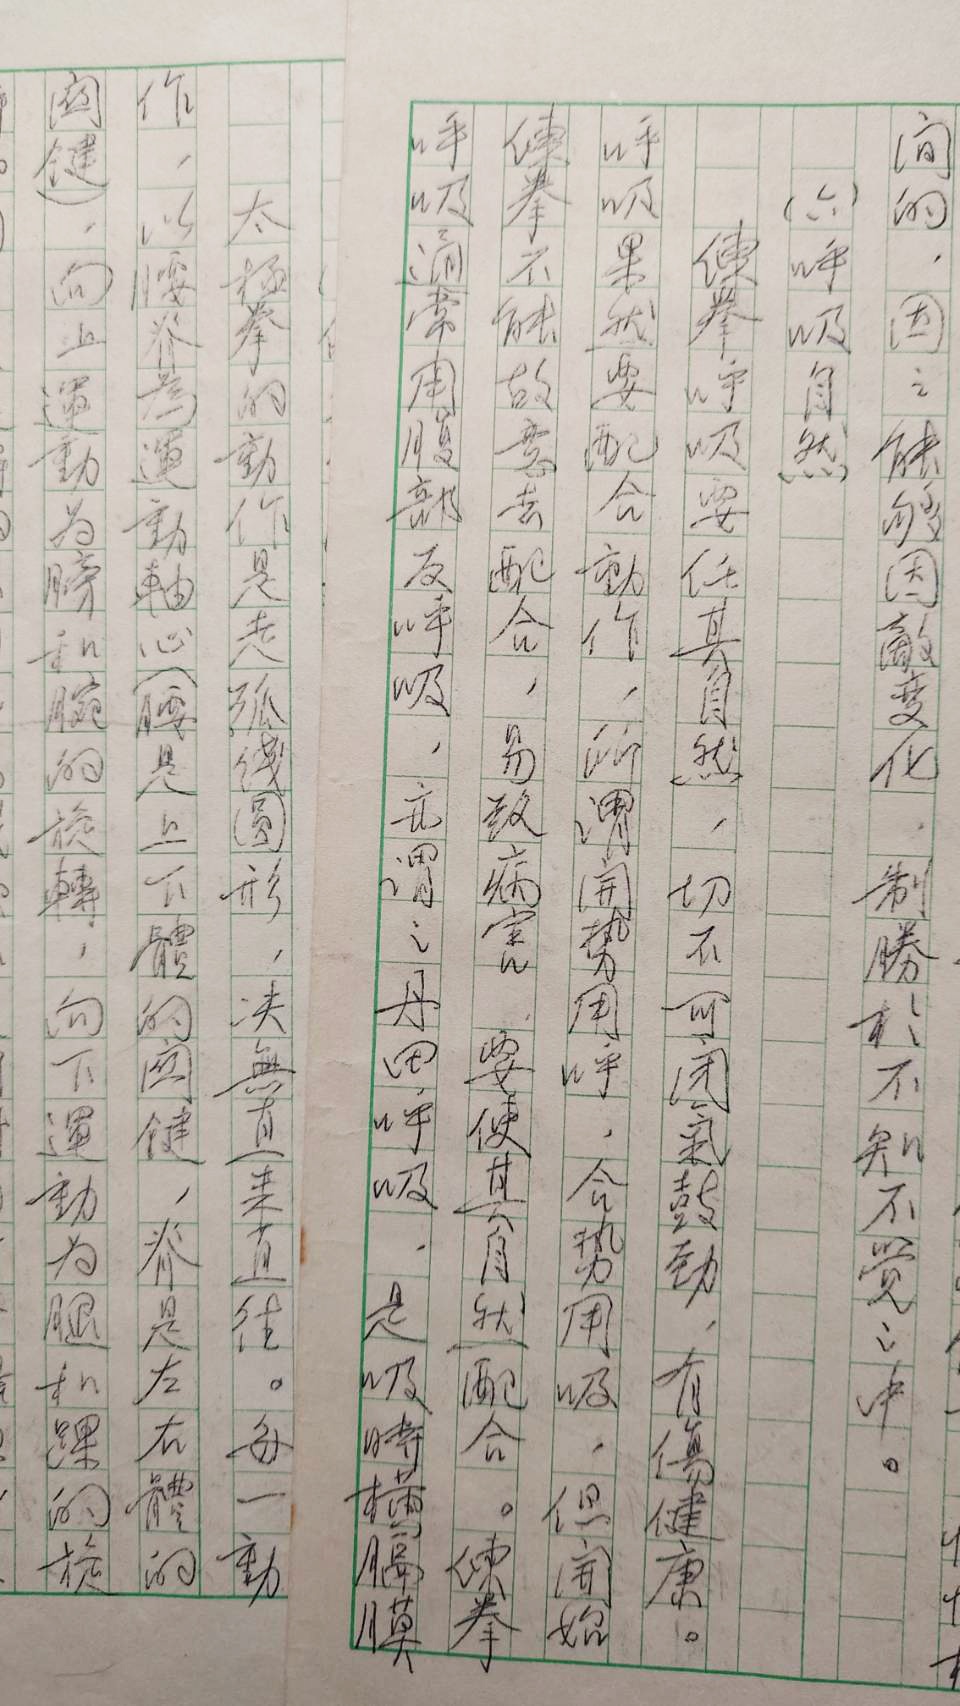 间的，因之能够因敵变化，制勝於不知不觉之中。
(六)呼吸自然
練拳呼吸要任其自然，切不可闭氣鼓劲，有傷健康。
呼吸果然要配合動作，所谓開势用呼，合势用吸，但開始
練拳不能故意去配合，易致病害，要使其自然配合。練拳
呼吸通常用腹部反呼吸，亦谓之丹田呼吸，是吸時横膈膜
太極拳的動作是走弧线圆形，决無直来直往。每一動
作，以腰脊為運動軸心(腰是上下體的関健，脊是左右體的
関健)，向上運動为膀和腕的旋轉，向下運動为腿和踝的旋